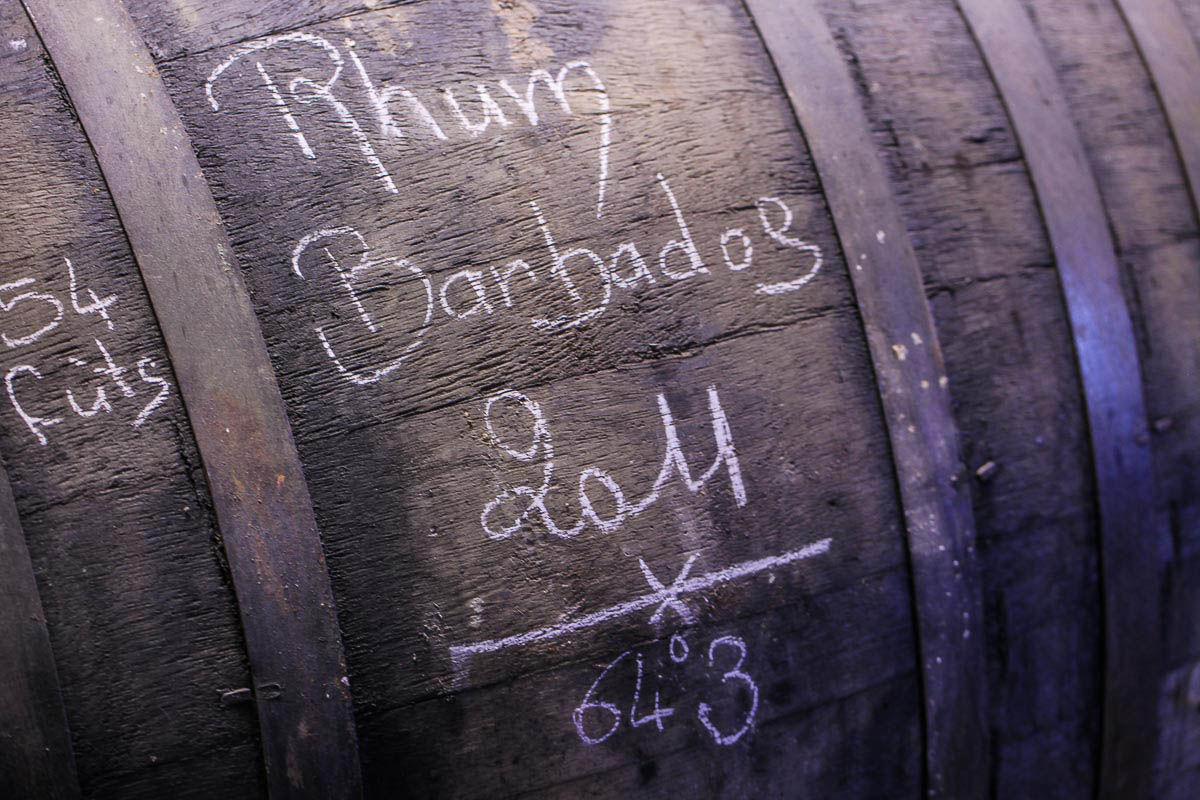 Rhum
Barbados
2011
64°3
54
fûts